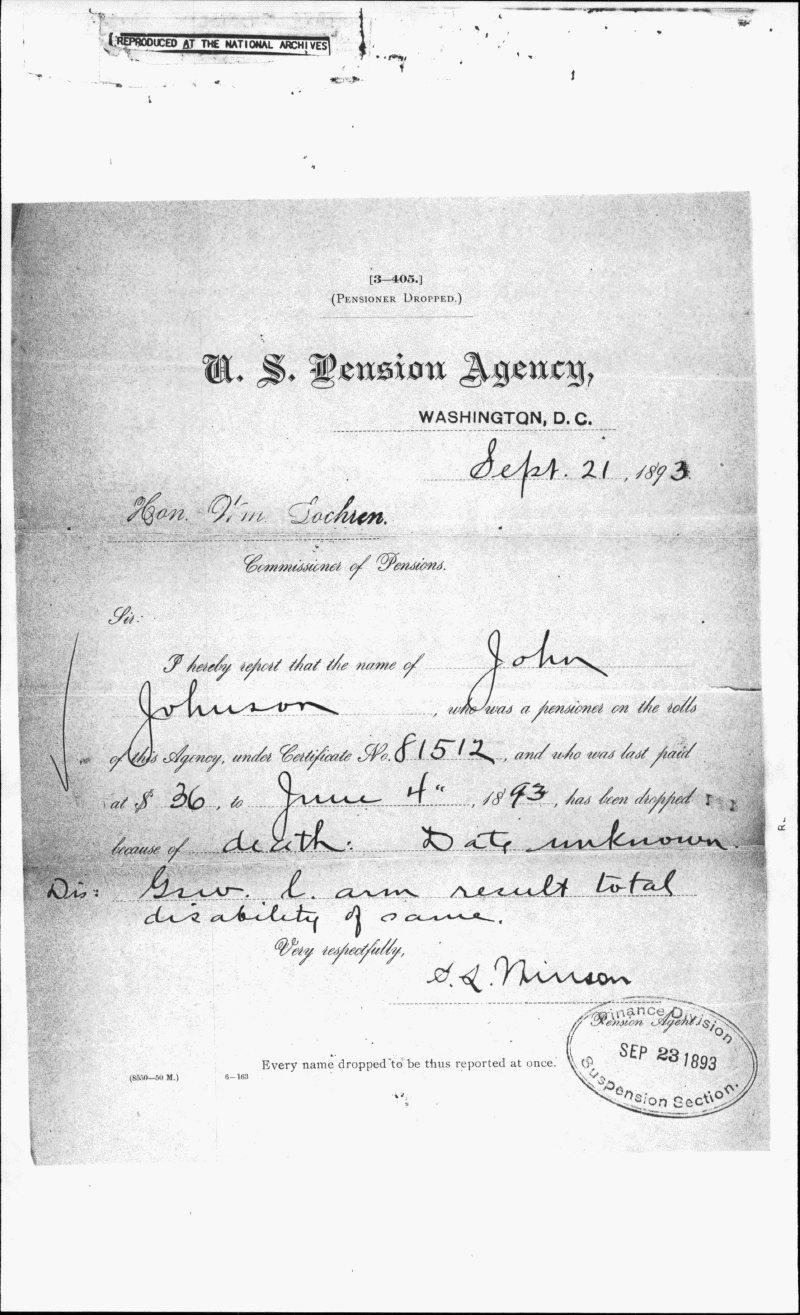 REPRODUCED AT THE NATIONAL ARCHIVES
[3—405.]
(PENSIONER DROPPED.)
U. S. Pension Agency,
WASHINGTON, D. C.
Sept. 21, 1893.
Hon. Wm Lochren.
Commissioner of Pensions.
Sir:
I hereby report that the name of John
Johnson, who was a pensioner on the rolls
of this Agency, under Certificate No. 81512, and who was last paid
at $ 36, to June 4", 1893, has been dropped
because of death: Date unknown.
Dis: Gsw. l. arm result total
disability of same.
Very respectfully,
S. L. Willson
Pension Agent.
Finance Division
SEP 23 1893
Suspension Section.
Every name dropped to be thus reported at once.
(8550—50 M.) 6—163
R-